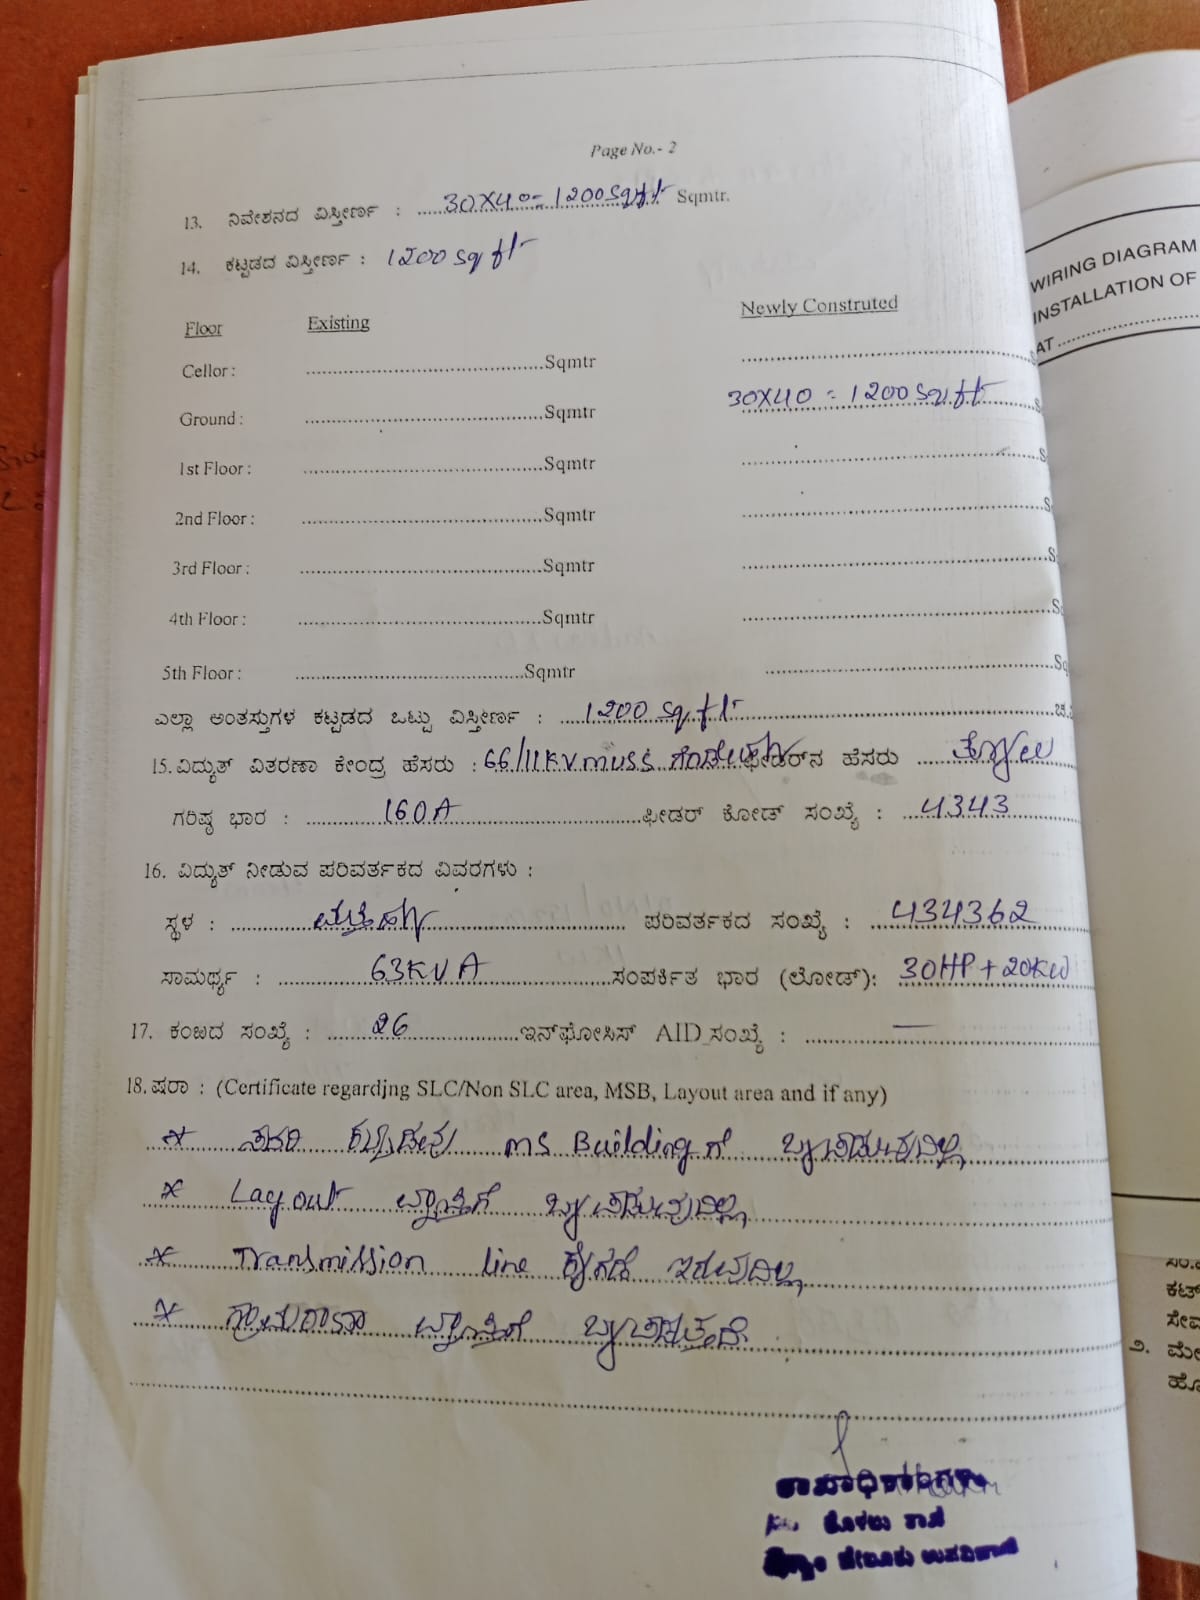 Page No.- 2
13. ನಿವೇಶನದ ವಿಸ್ತೀರ್ಣ : 30X40= 1200Sqft Sqmtr.
14. ಕಟ್ಟಡದ ವಿಸ್ತೀರ್ಣ : 1200 sq ft
Floor Existing Newly Construted
Cellor : ........Sqmtr ........
Ground : ........Sqmtr 30X40 = 1200 sq ft
1st Floor : ........Sqmtr ........
2nd Floor : ........Sqmtr ........
3rd Floor : ........Sqmtr ........
4th Floor : ........Sqmtr ........
5th Floor : ........Sqmtr ........
ಎಲ್ಲಾ ಅಂತಸ್ತುಗಳ ಕಟ್ಟಡದ ಒಟ್ಟು ವಿಸ್ತೀರ್ಣ : 1200 sq ft
15. ವಿದ್ಯುತ್ ವಿತರಣಾ ಕೇಂದ್ರ ಹೆಸರು : 66/11KV muss ಫೀಡರ್‌ನ ಹೆಸರು
ಗರಿಷ್ಠ ಭಾರ : 160A ಫೀಡರ್ ಕೋಡ್ ಸಂಖ್ಯೆ : 4343
16. ವಿದ್ಯುತ್ ನೀಡುವ ಪರಿವರ್ತಕದ ವಿವರಗಳು :
ಸ್ಥಳ : ಪರಿವರ್ತಕದ ಸಂಖ್ಯೆ : 434362
ಸಾಮರ್ಥ್ಯ : 63KVA ಸಂಪರ್ಕಿತ ಭಾರ (ಲೋಡ್): 30HP + 20KW
17. ಕಂಬದ ಸಂಖ್ಯೆ : 26 ಇನ್‌ಫೋಸಿಸ್ AID ಸಂಖ್ಯೆ : —
18. ಷರಾ : (Certificate regardjng SLC/Non SLC area, MSB, Layout area and if any)
* ಸದರಿ ಕಟ್ಟಡವು ms Building ಗೆ
* Layout ವ್ಯಾಪ್ತಿಗೆ
* Transmission line ಕೆಳಗಡೆ ಇರುವುದಿಲ್ಲ
* ವ್ಯಾಪ್ತಿಗೆ
WIRING DIAGRAM
INSTALLATION OF
AT ........
ಕಟ್
ಸೇವ
೨. ಮೇ
ಹೊ